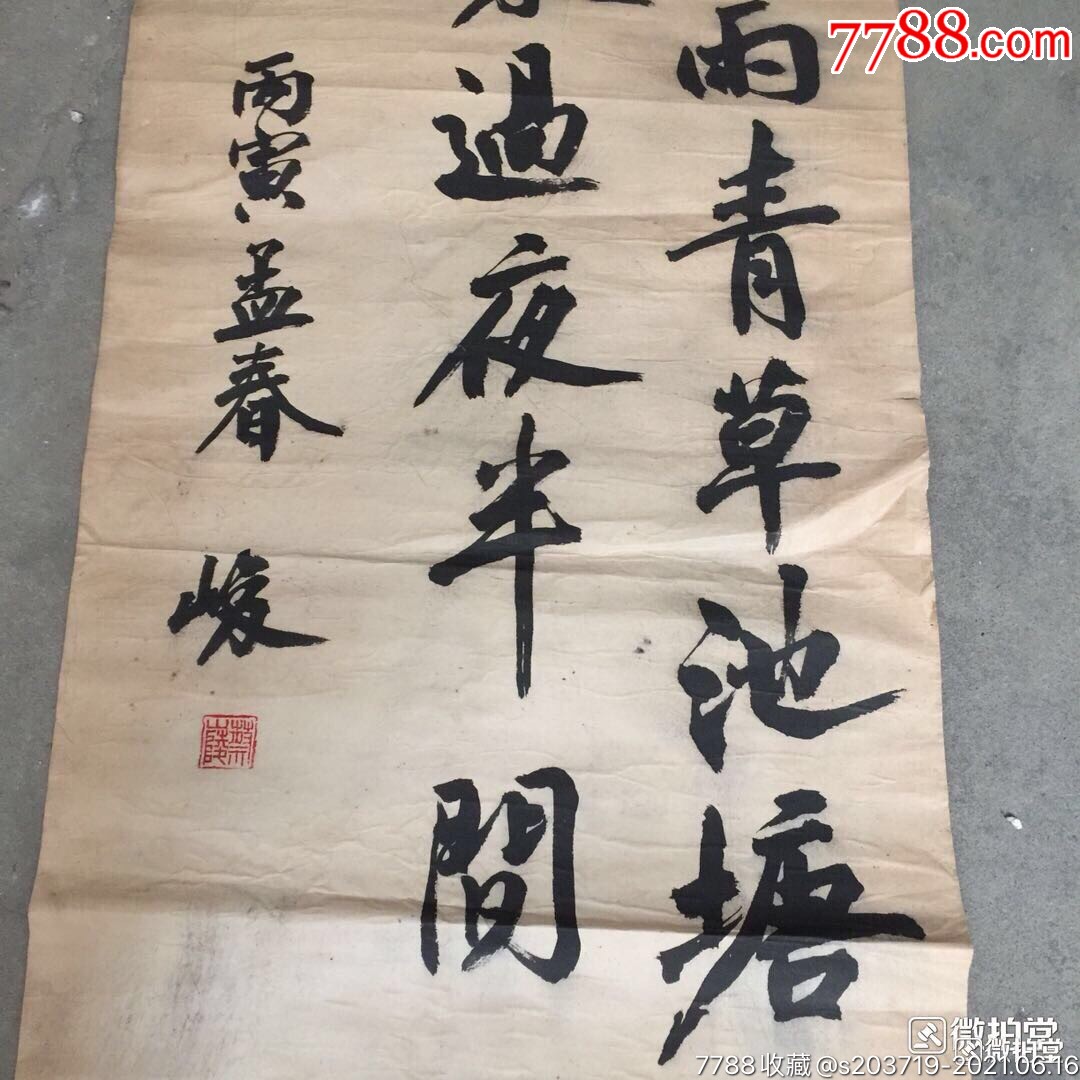 7788.com
雨青草池塘
過夜半間
丙寅孟春
峻
微拍堂
微拍堂
7788收藏@s203719-2021.06.16